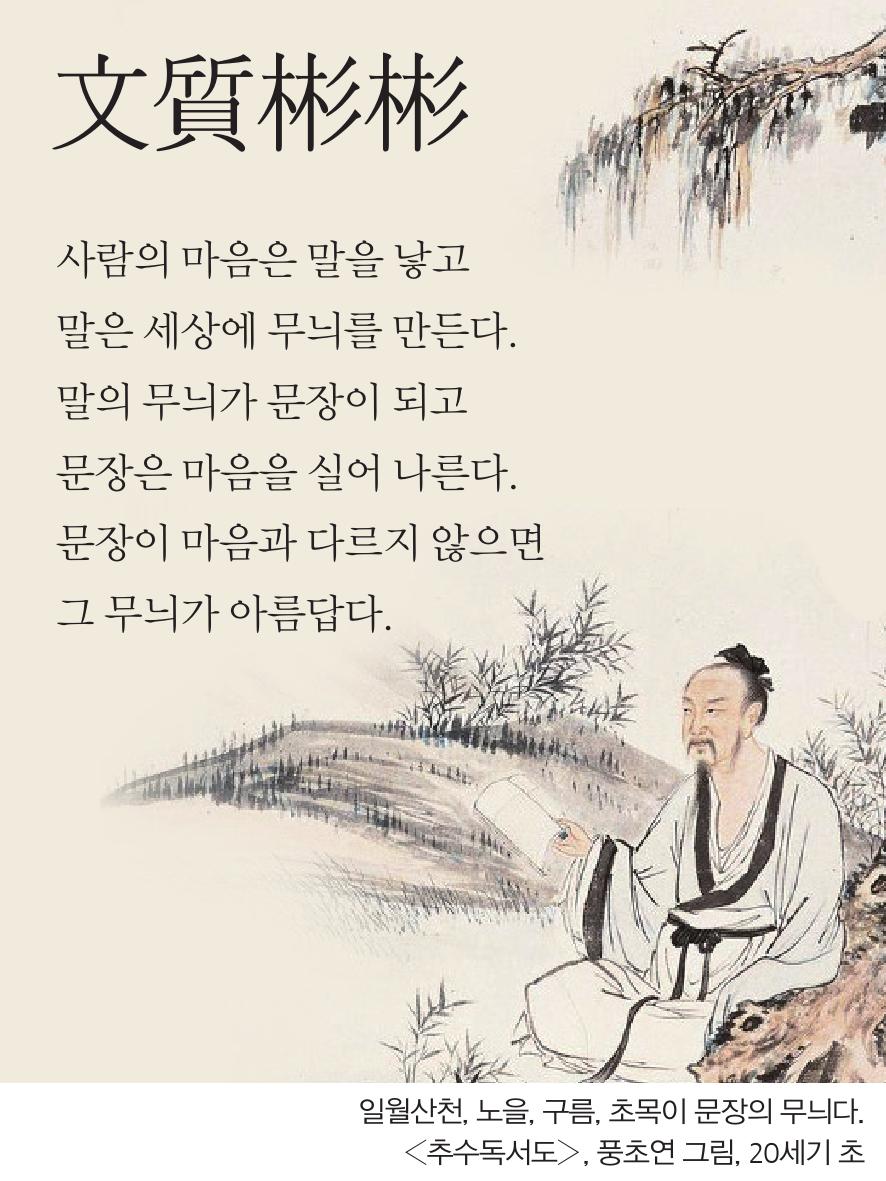 文質彬彬
사람의 마음은 말을 낳고
말은 세상에 무늬를 만든다.
말의 무늬가 문장이 되고
문장은 마음을 실어 나른다.
문장이 마음과 다르지 않으면
그 무늬가 아름답다.
일월산천, 노을, 구름, 초목이 문장의 무늬다.
<추수독서도>, 풍초연 그림, 20세기 초